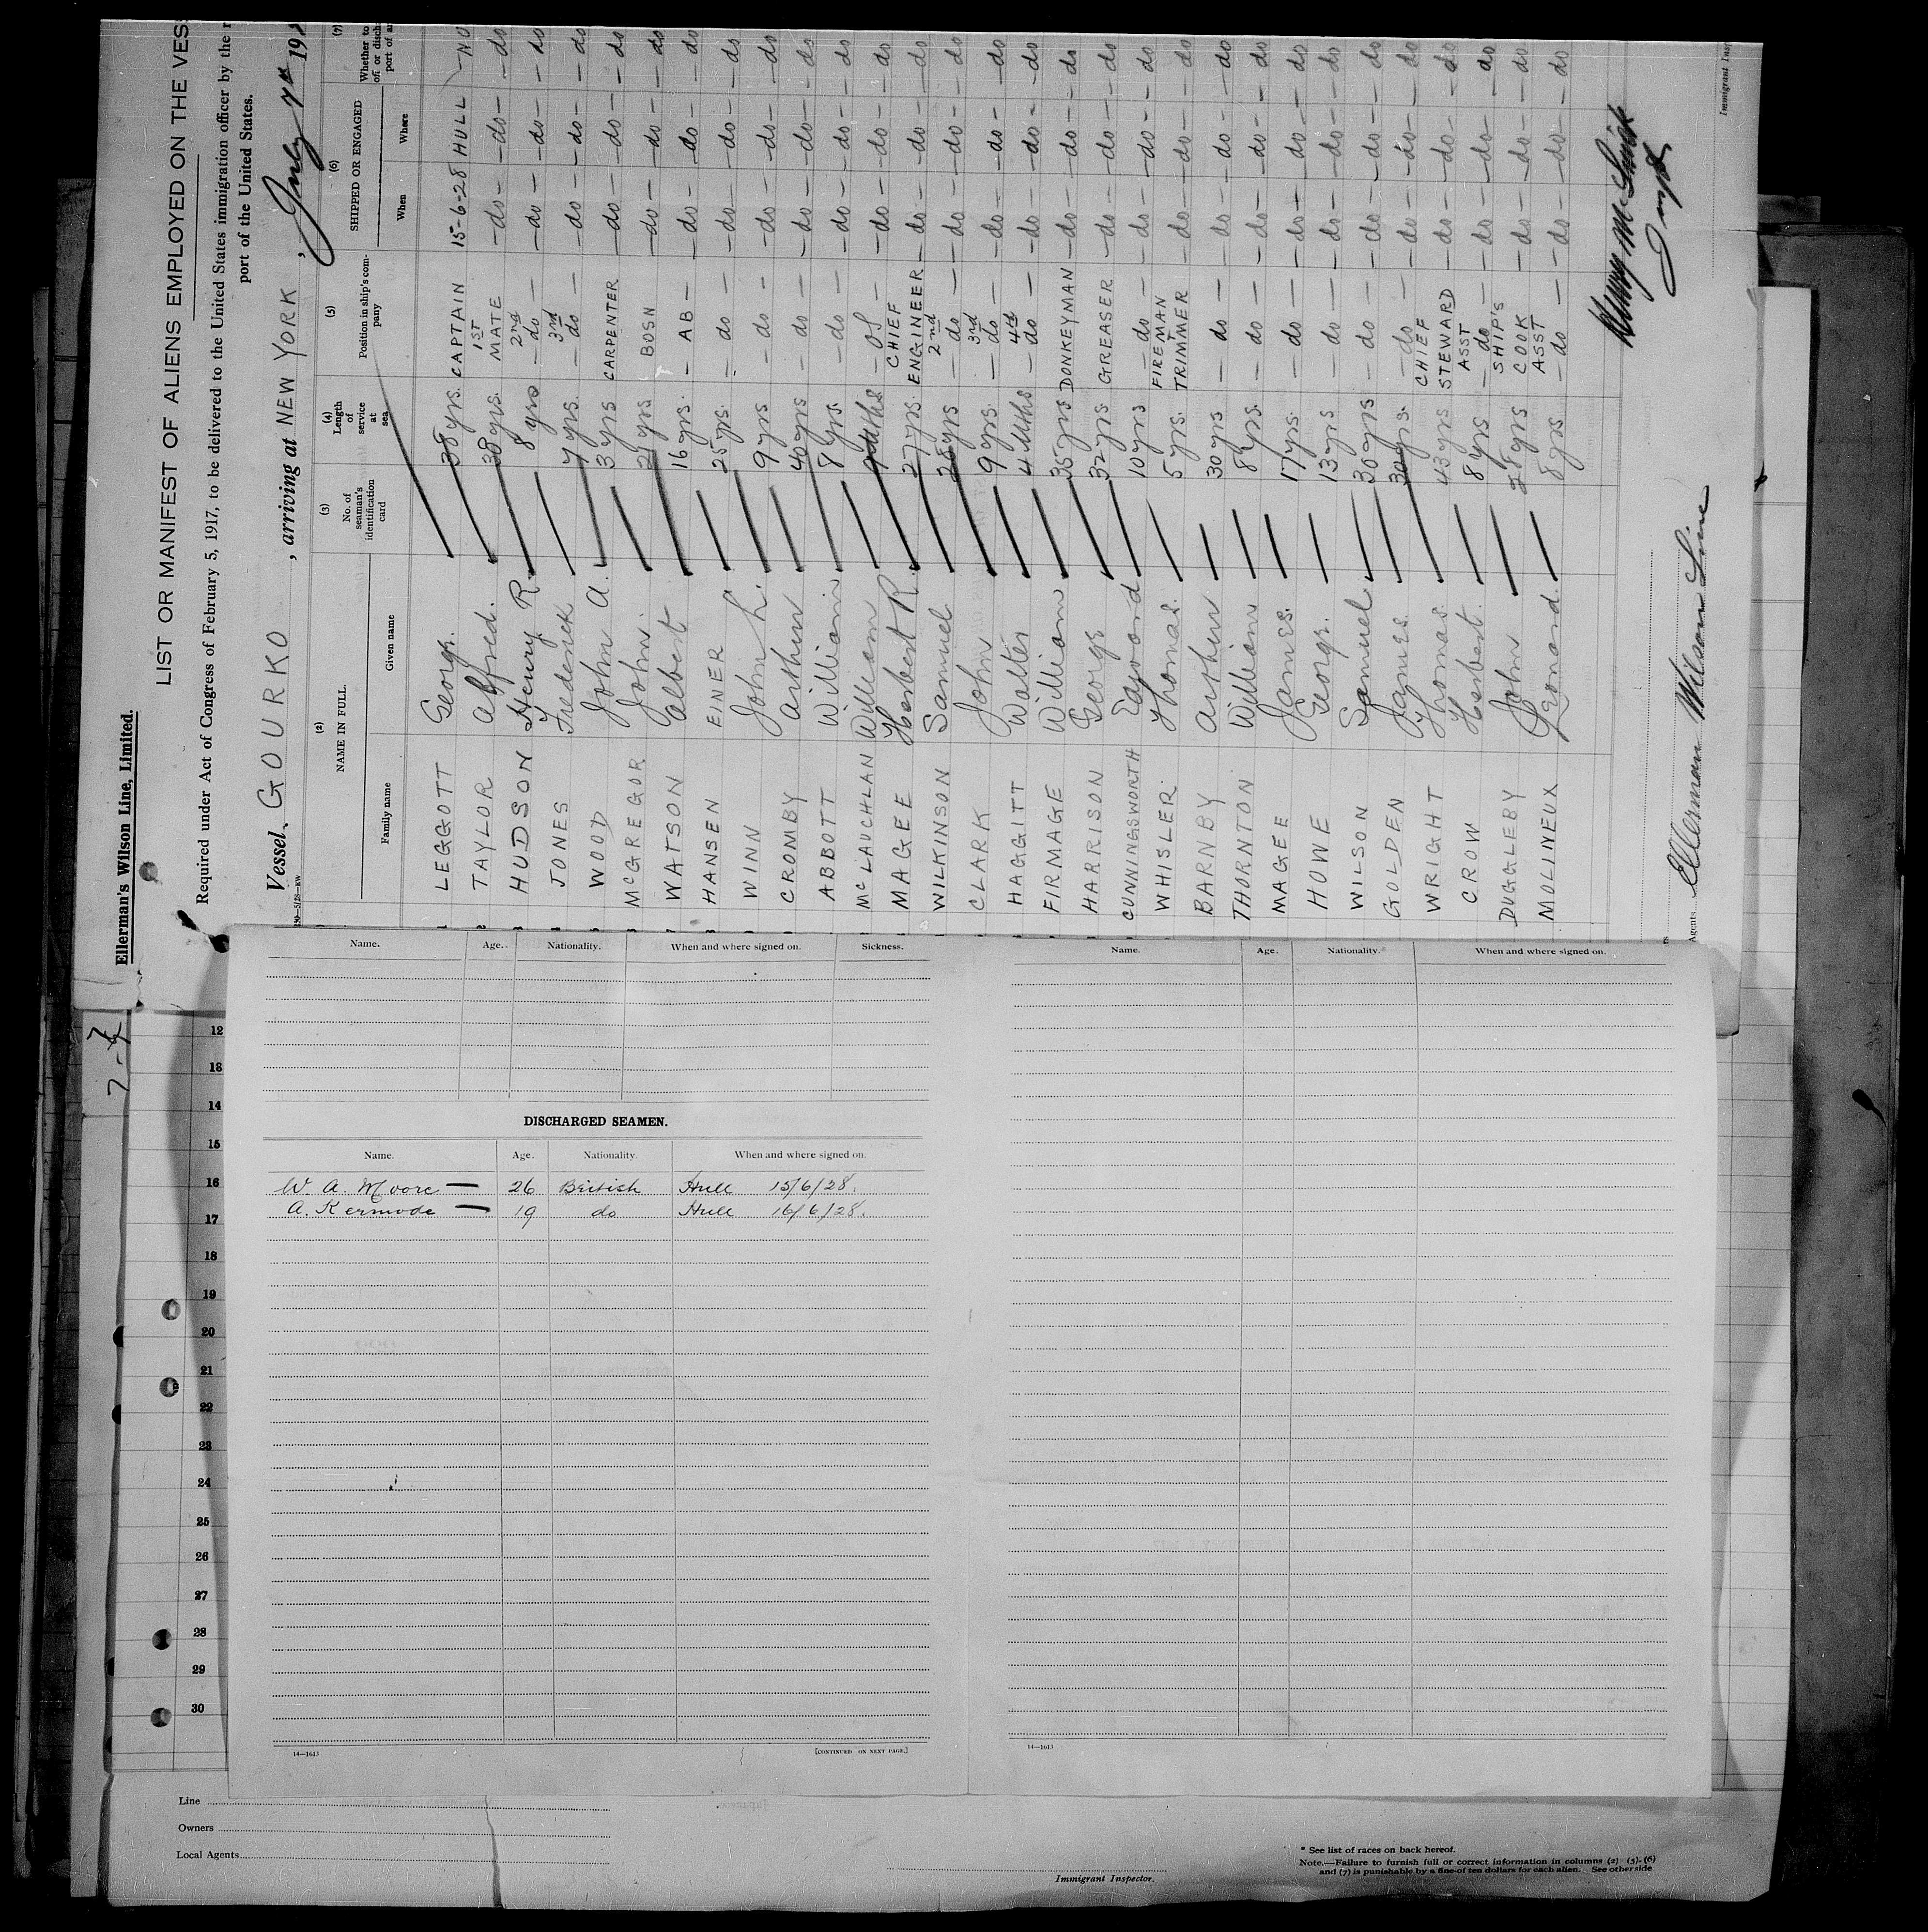 Ellerman's Wilson Line, Limited.
LIST OR MANIFEST OF ALIENS EMPLOYED ON THE VES
Required under Act of Congress of February 5, 1917, to be delivered to the United States immigration officer by the r
port of the United States.
Vessel GOURKO , arriving at NEW YORK , July 7th 192
(2) (3) (4) (5) (6) (7)
NAME IN FULL. No. of seaman's identification card Length of service at sea Position in ship's company SHIPPED OR ENGAGED Whether to
Family name Given name When Where
LEGGOTT George. 38 yrs. CAPTAIN 15-6-28 HULL - NO
TAYLOR Alfred. 30 yrs. 1ST MATE - do - - do - - do
HUDSON Henry R. 8 yrs 2nd - do - - do - - do - - do
JONES Frederick 7 yrs. 3rd - do - - do - - do - - do
WOOD John A. 3 yrs CARPENTER - do - - do - - do
McGREGOR John. 21 yrs BOSN - do - - do - - do
WATSON Albert 16 yrs. - AB - - do - - do - - do
HANSEN EINER 25 yrs. - do - - do - - do - - do
WINN John L. 9 yrs - do - - do - - do - - do
CROMBY Arthur 40 yrs - do - - do - - do - - do
ABBOTT William 8 yrs. - do - - do - - do - - do
McLAUCHLAN William 9 mths - OS - - do - - do - - do
MAGEE Herbert R. 27 yrs. CHIEF ENGINEER - do - - do - - do
WILKINSON Samuel 28 yrs 2nd - do - - do - - do - - do
CLARK John 9 yrs. 3rd - do - - do - - do - - do
HAGGITT Walter 4 mths 4th - do - - do - - do - - do
FIRMAGE William 35 yrs DONKEYMAN - do - - do - - do
HARRISON George 32 yrs GREASER - do - - do - - do
CUNNINGSWORTH Edward 10 yrs - do - - do - - do - - do
WHISLER. Thomas. 5 yrs. FIREMAN TRIMMER - do - - do - - do
BARNBY Arthur 30 yrs - do - - do - - do - - do
THORNTON William 8 yrs. - do - - do - - do - - do
MAGEE James. 17 yrs. - do - - do - - do - - do
HOWE George. 13 yrs - do - - do - - do - - do
WILSON Samuel. 30 yrs - do - - do - - do - - do
GOLDEN James. 30 yrs. - do - - do - - do - - do
WRIGHT Thomas. 43 yrs CHIEF STEWARD - do - - do - - do
CROW Herbert. 8 yrs ASST - do - - do - - do - - do
DUGGLEBY John 28 yrs SHIP'S COOK - do - - do - - do
MOLINEUX Leonard. 8 yrs ASST - do - - do - - do - - do
Agents Ellerman Wilson Line
Immigrant Insp
7-7
Name. Age. Nationality. When and where signed on. Sickness.
DISCHARGED SEAMEN.
Name. Age. Nationality. When and where signed on.
W. A. Moore — 26 British Hull 15/6/28.
A. Kermode — 19 do Hull 16/6/28.
14—1613 [CONTINUED ON NEXT PAGE.]
Name. Age. Nationality. When and where signed on.
14—1613
12
13
14
15
16
17
18
19
20
21
22
23
24
25
26
27
28
29
30
Line
Owners
Local Agents
Immigrant Inspector.
* See list of races on back hereof.
Note.—Failure to furnish full or correct information in columns (2) (5) (6)
and (7) is punishable by a fine of ten dollars for each alien. See other side